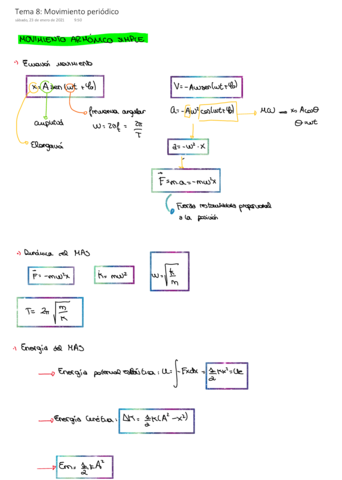 Tema 8: Movimiento periódico
sábado, 23 de enero de 2021 9:50
MOVIMIENTO ARMÓNICO SIMPLE
Ecuación movimiento
x = A sen (wt + φ₀)
V = -Awsen(wt+φ₀)
frecuencia angular
w = 2πf = 2π/T
amplitud
Elongación
a = -Aw² cos(wt+φ₀) → MCU → x = A cos θ
θ = wt
a = -w² · x
F = m·a = -mw²x
Fuerza restauradora proporcional
a la posición
Dinámica del MAS
F = -mw²x
k = mw²
w = √(k/m)
T = 2π √(m/k)
Energía del MAS
→ Energía potencial elástica: U = ∫ -Fxdx = 1/2 kx² = Ue
→ Energía Cinética: ΔK = 1/2 k(A² - x²)
→ Em = 1/2 kA²